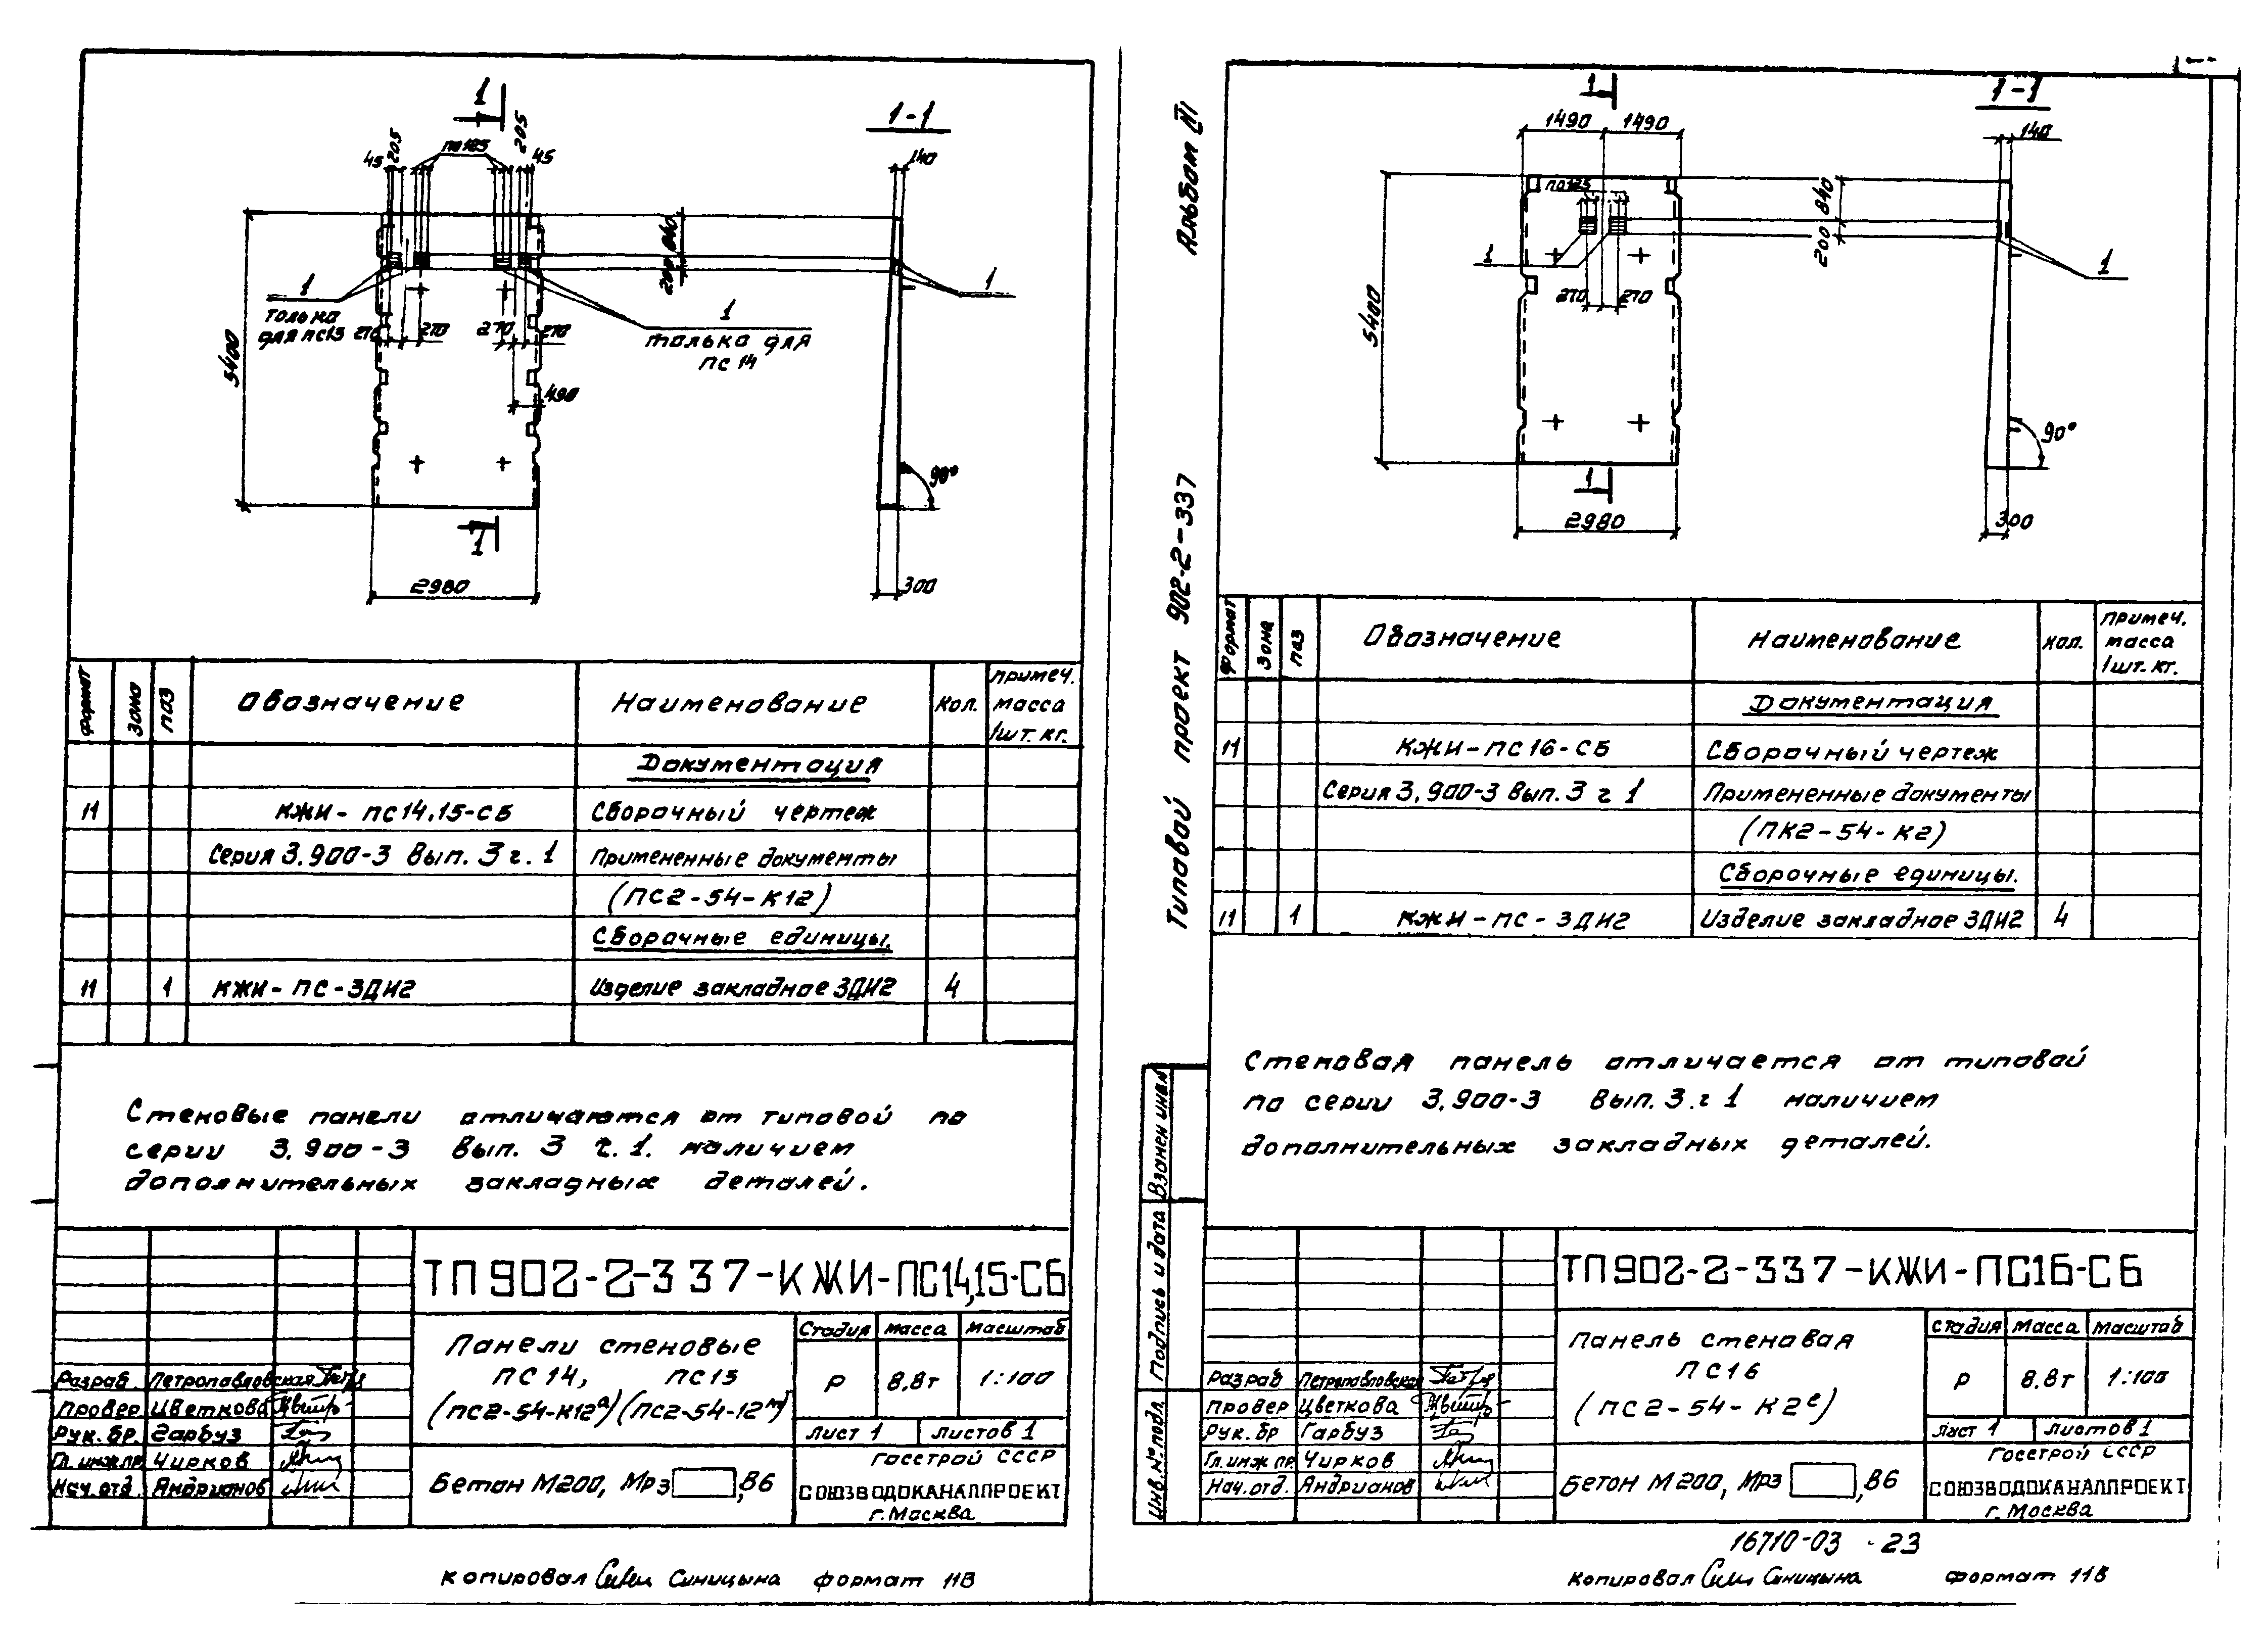 1
1-1
45
205
по 125
205
45
140
840
200
1
только
для ПС15
270
270
270
270
1
только для
ПС 14
1
5400
490
90°
1
2980
300
Формат
Зона
Поз
Обозначение
Наименование
Кол.
Примеч.
масса
1шт. кг.
Документация
11
КЖИ - ПС14,15-СБ
Сборочный чертеж
Серия 3.900-3 Вып. 3 ч. 1
Примененные документы
(ПС2-54-К12)
Сборочные единицы.
11
1
КЖИ - ПС - ЗДИ2
Изделие закладное ЗДИ2
4
Стеновые панели отличаются от типовой по
серии 3.900-3 Вып. 3 ч. 1. наличием
дополнительных закладных деталей.
ТП902-2-337-КЖИ-ПС14,15-СБ
Панели стеновые
ПС 14, ПС15
(ПС2-54-К12ᵃ) (ПС2-54-12ᴹ)
Стадия
Масса
Масштаб
Р
8.8т
1:100
Лист 1
Листов 1
Разраб.
Петропавловская
Провер
Цветкова
Рук. бр.
Гарбуз
Гл. инж пр
Чирков
Нач. отд
Андрианов
Бетон М200, Мрз ,В6
Госстрой СССР
СОЮЗВОДОКАНАЛПРОЕКТ
г. Москва
Копировал Синицына формат 11В
Альбом III
Типовой проект 902-2-337
1
1-1
1490
1490
140
по 125
840
200
1
1
270
270
5400
90°
1
2980
300
Формат
Зона
Поз
Обозначение
Наименование
Кол.
Примеч.
масса
1шт. кг.
Документация
11
КЖИ-ПС16-СБ
Сборочный чертеж
Серия 3.900-3 Вып. 3 ч 1
Примененные документы
(ПК2-54-К2)
Сборочные единицы.
11
1
КЖИ-ПС-ЗДИ2
Изделие закладное ЗДИ2
4
Стеновая панель отличается от типовой
по серии 3.900-3 Вып. 3. ч 1 наличием
дополнительных закладных деталей.
Взамен инв.№
Подпись и дата
Инв. № подл.
ТП902-2-337-КЖИ-ПС16-СБ
Панель стеновая
ПС16
(ПС2-54-К2ᵉ)
Стадия
Масса
Масштаб
Р
8.8т
1:100
Лист 1
Листов 1
Разраб
Петропавловская
Провер
Цветкова
Рук. бр
Гарбуз
Гл. инж пр.
Чирков
Нач. отд.
Андрианов
Бетон М200, Мрз ,В6
Госстрой СССР
СОЮЗВОДОКАНАЛПРОЕКТ
г. Москва
16710-03 -23
Копировал Синицына формат 11В